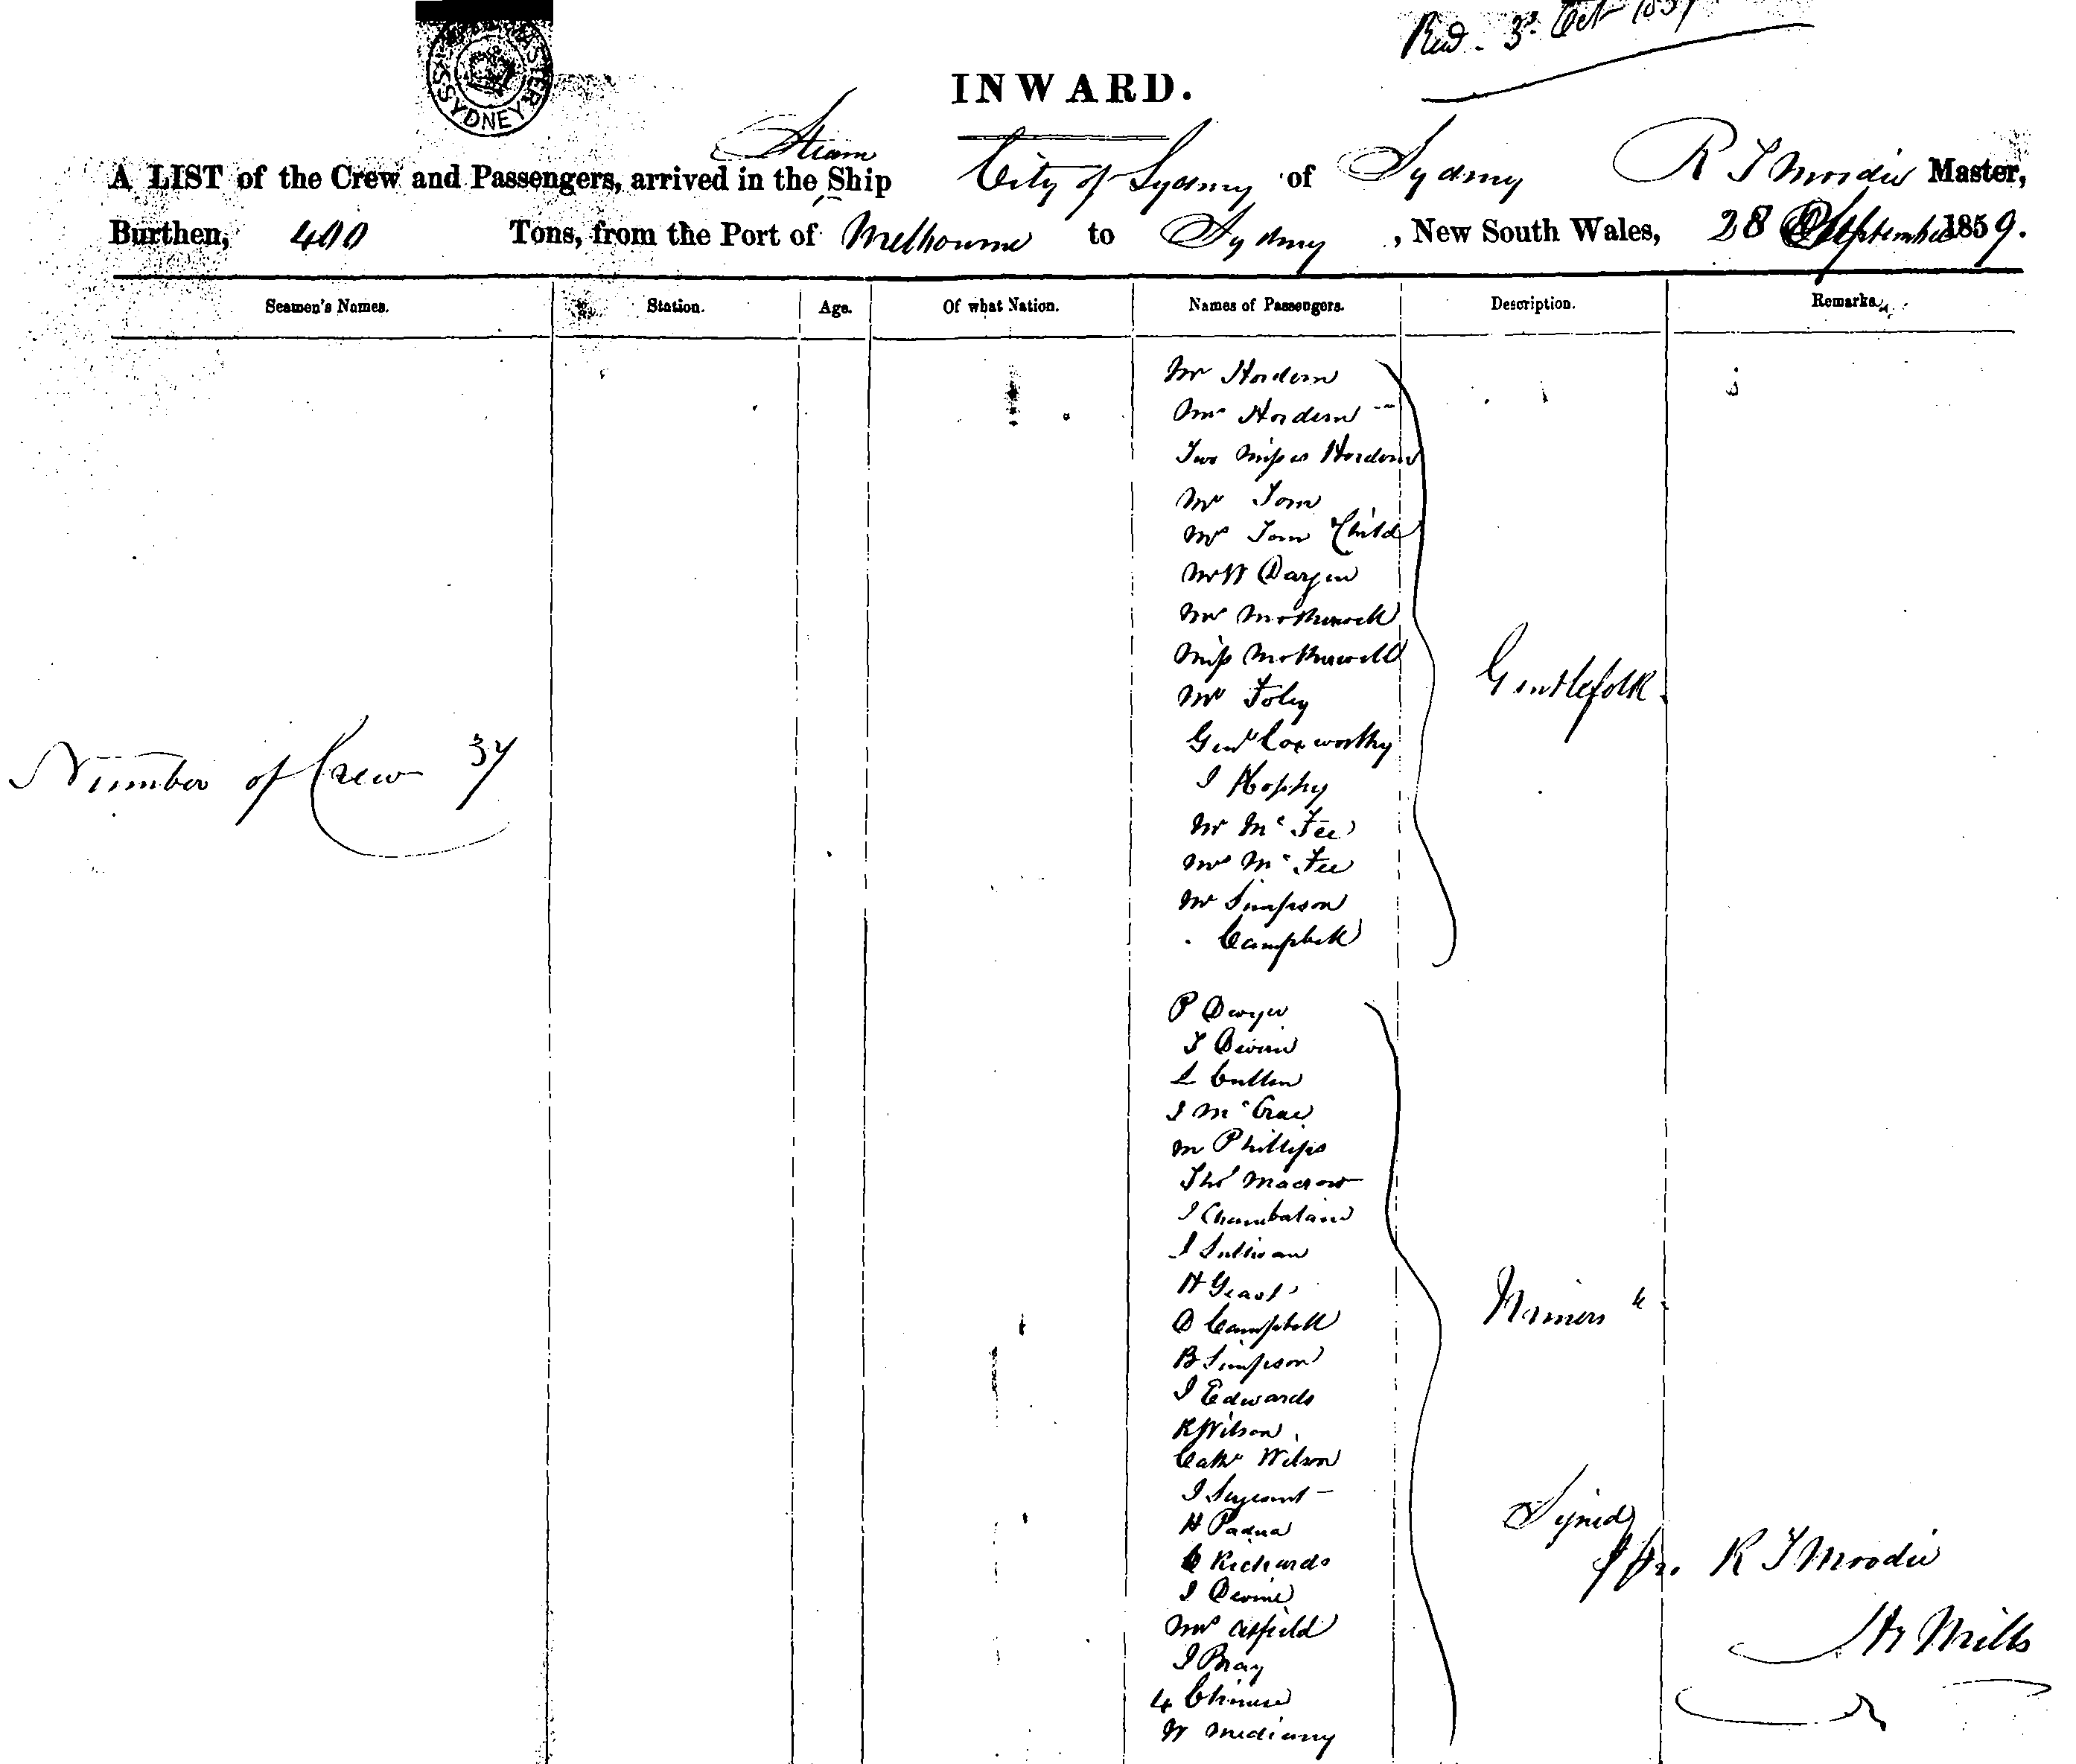 Recd. 3d Oct 1859
SYDNEY
INWARD.
Steam
A LIST of the Crew and Passengers, arrived in the Ship City of Sydney of Sydney R T Moodie Master,
Burthen, 400 Tons, from the Port of Melbourne to Sydney, New South Wales, 28 September 1859.
Seamen's Names. Station. Age. Of what Nation. Names of Passengers. Description. Remarks.
Mr Hordern
Mrs Hordern
Two Misses Hordern
Mr Tom
Mrs Tom Child
Mr W Dargin
Mr Motherwell
Miss Motherwell
Mr Foley
Gentlefolk.
Number of Crew 37
Coxworthy
J
Mr McFee
Mrs McFee
Mr Simpson
Campbell
P Dwyer
T Devine
L Cullen
J McCrae
M Phillips
Thos Macrow
J Chamberlain
J Sullivan
H
D Campbell
Miners &c
B Simpson
J Edwards
R Wilson
Cath Wilson
J Sergeant
H Padua
C Richards
J Devine
Mrs
J Bray
4 Chinese
W
Signed
pr. R T Moodie
Hy Mills